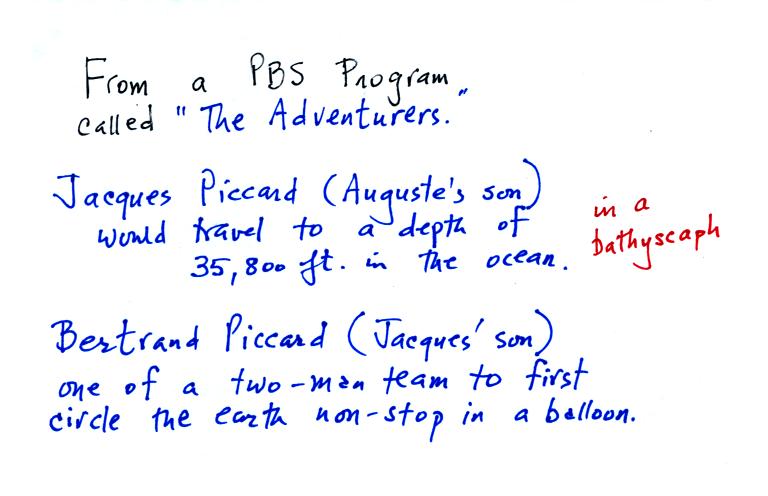 From a PBS Program
called "The Adventurers."
Jacques Piccard (Auguste's son)
would travel to a depth of
35,800 ft. in the ocean.
in a
bathyscaph
Bertrand Piccard (Jacques' son)
one of a two-man team to first
circle the earth non-stop in a balloon.